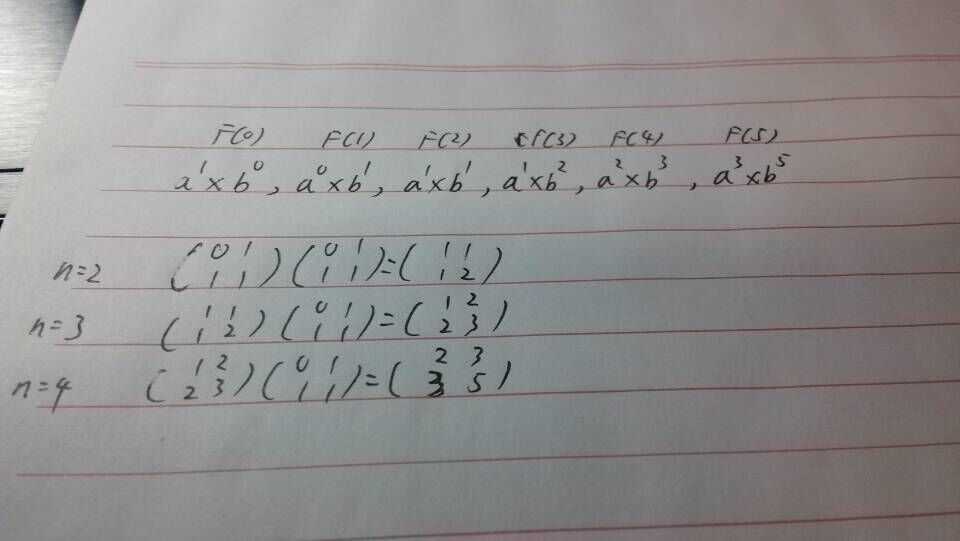 F(0) F(1) F(2) F(3) F(4) F(5)
a¹×b⁰, a⁰×b¹, a¹×b¹, a¹×b², a²×b³, a³×b⁵
n=2 (0 1
1 1)(0 1
1 1)=(1 1
1 2)
n=3 (1 1
1 2)(0 1
1 1)=(1 2
2 3)
n=4 (1 2
2 3)(0 1
1 1)=(2 3
3 5)